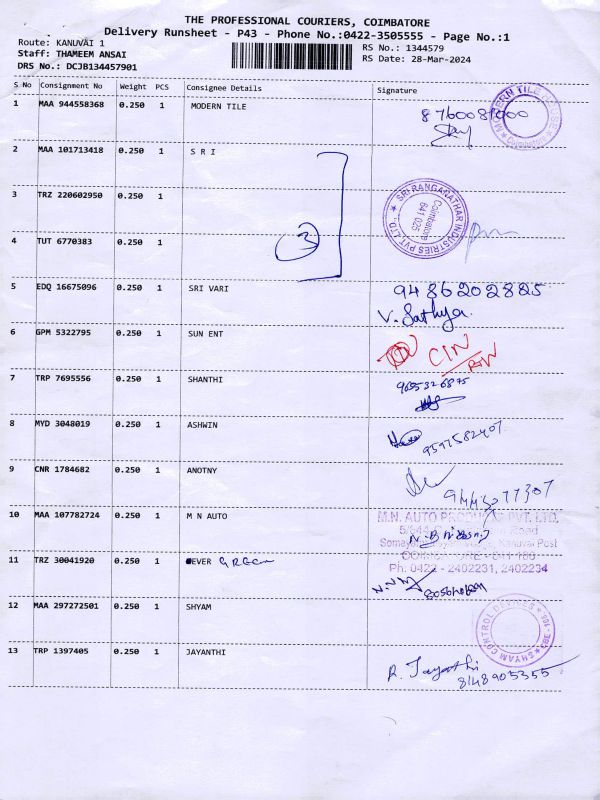 THE PROFESSIONAL COURIERS, COIMBATORE
Delivery Runsheet - P43 - Phone No.:0422-3505555 - Page No.:1
Route: KANUVAI 1 RS No.: 1344579
Staff: THAMEEM ANSAI RS Date: 28-Mar-2024
DRS No.: DCJB134457901
S No Consignment No Weight PCS Consignee Details Signature
1 MAA 944558368 0.250 1 MODERN TILE
MODERN TILE HOUSE
2 MAA 101713418 0.250 1 S R I
3 TRZ 220602950 0.250 1
SRI RANGANATHAR INDUSTRIES PVT. LTD.
Coimbatore
641 025
4 TUT 6770383 0.250 1
3
5 EDQ 16675096 0.250 1 SRI VARI 9486202825
V. Sathya
6 GPM 5322795 0.250 1 SUN ENT
CIN
7 TRP 7695556 0.250 1 SHANTHI 9655326875
8 MYD 3048019 0.250 1 ASHWIN
9597582407
9 CNR 1784682 0.250 1 ANOTNY
10 MAA 107782724 0.250 1 M N AUTO M.N. AUTO PVT. LTD.
Kanuvai Post
Ph: 0422 - 2402231, 2402234
11 TRZ 30041920 0.250 1 EVER GREEN
12 MAA 297272501 0.250 1 SHYAM
SHYAM CONTROL DEVICES
13 TRP 1397405 0.250 1 JAYANTHI R. Jayanthi
8148905355